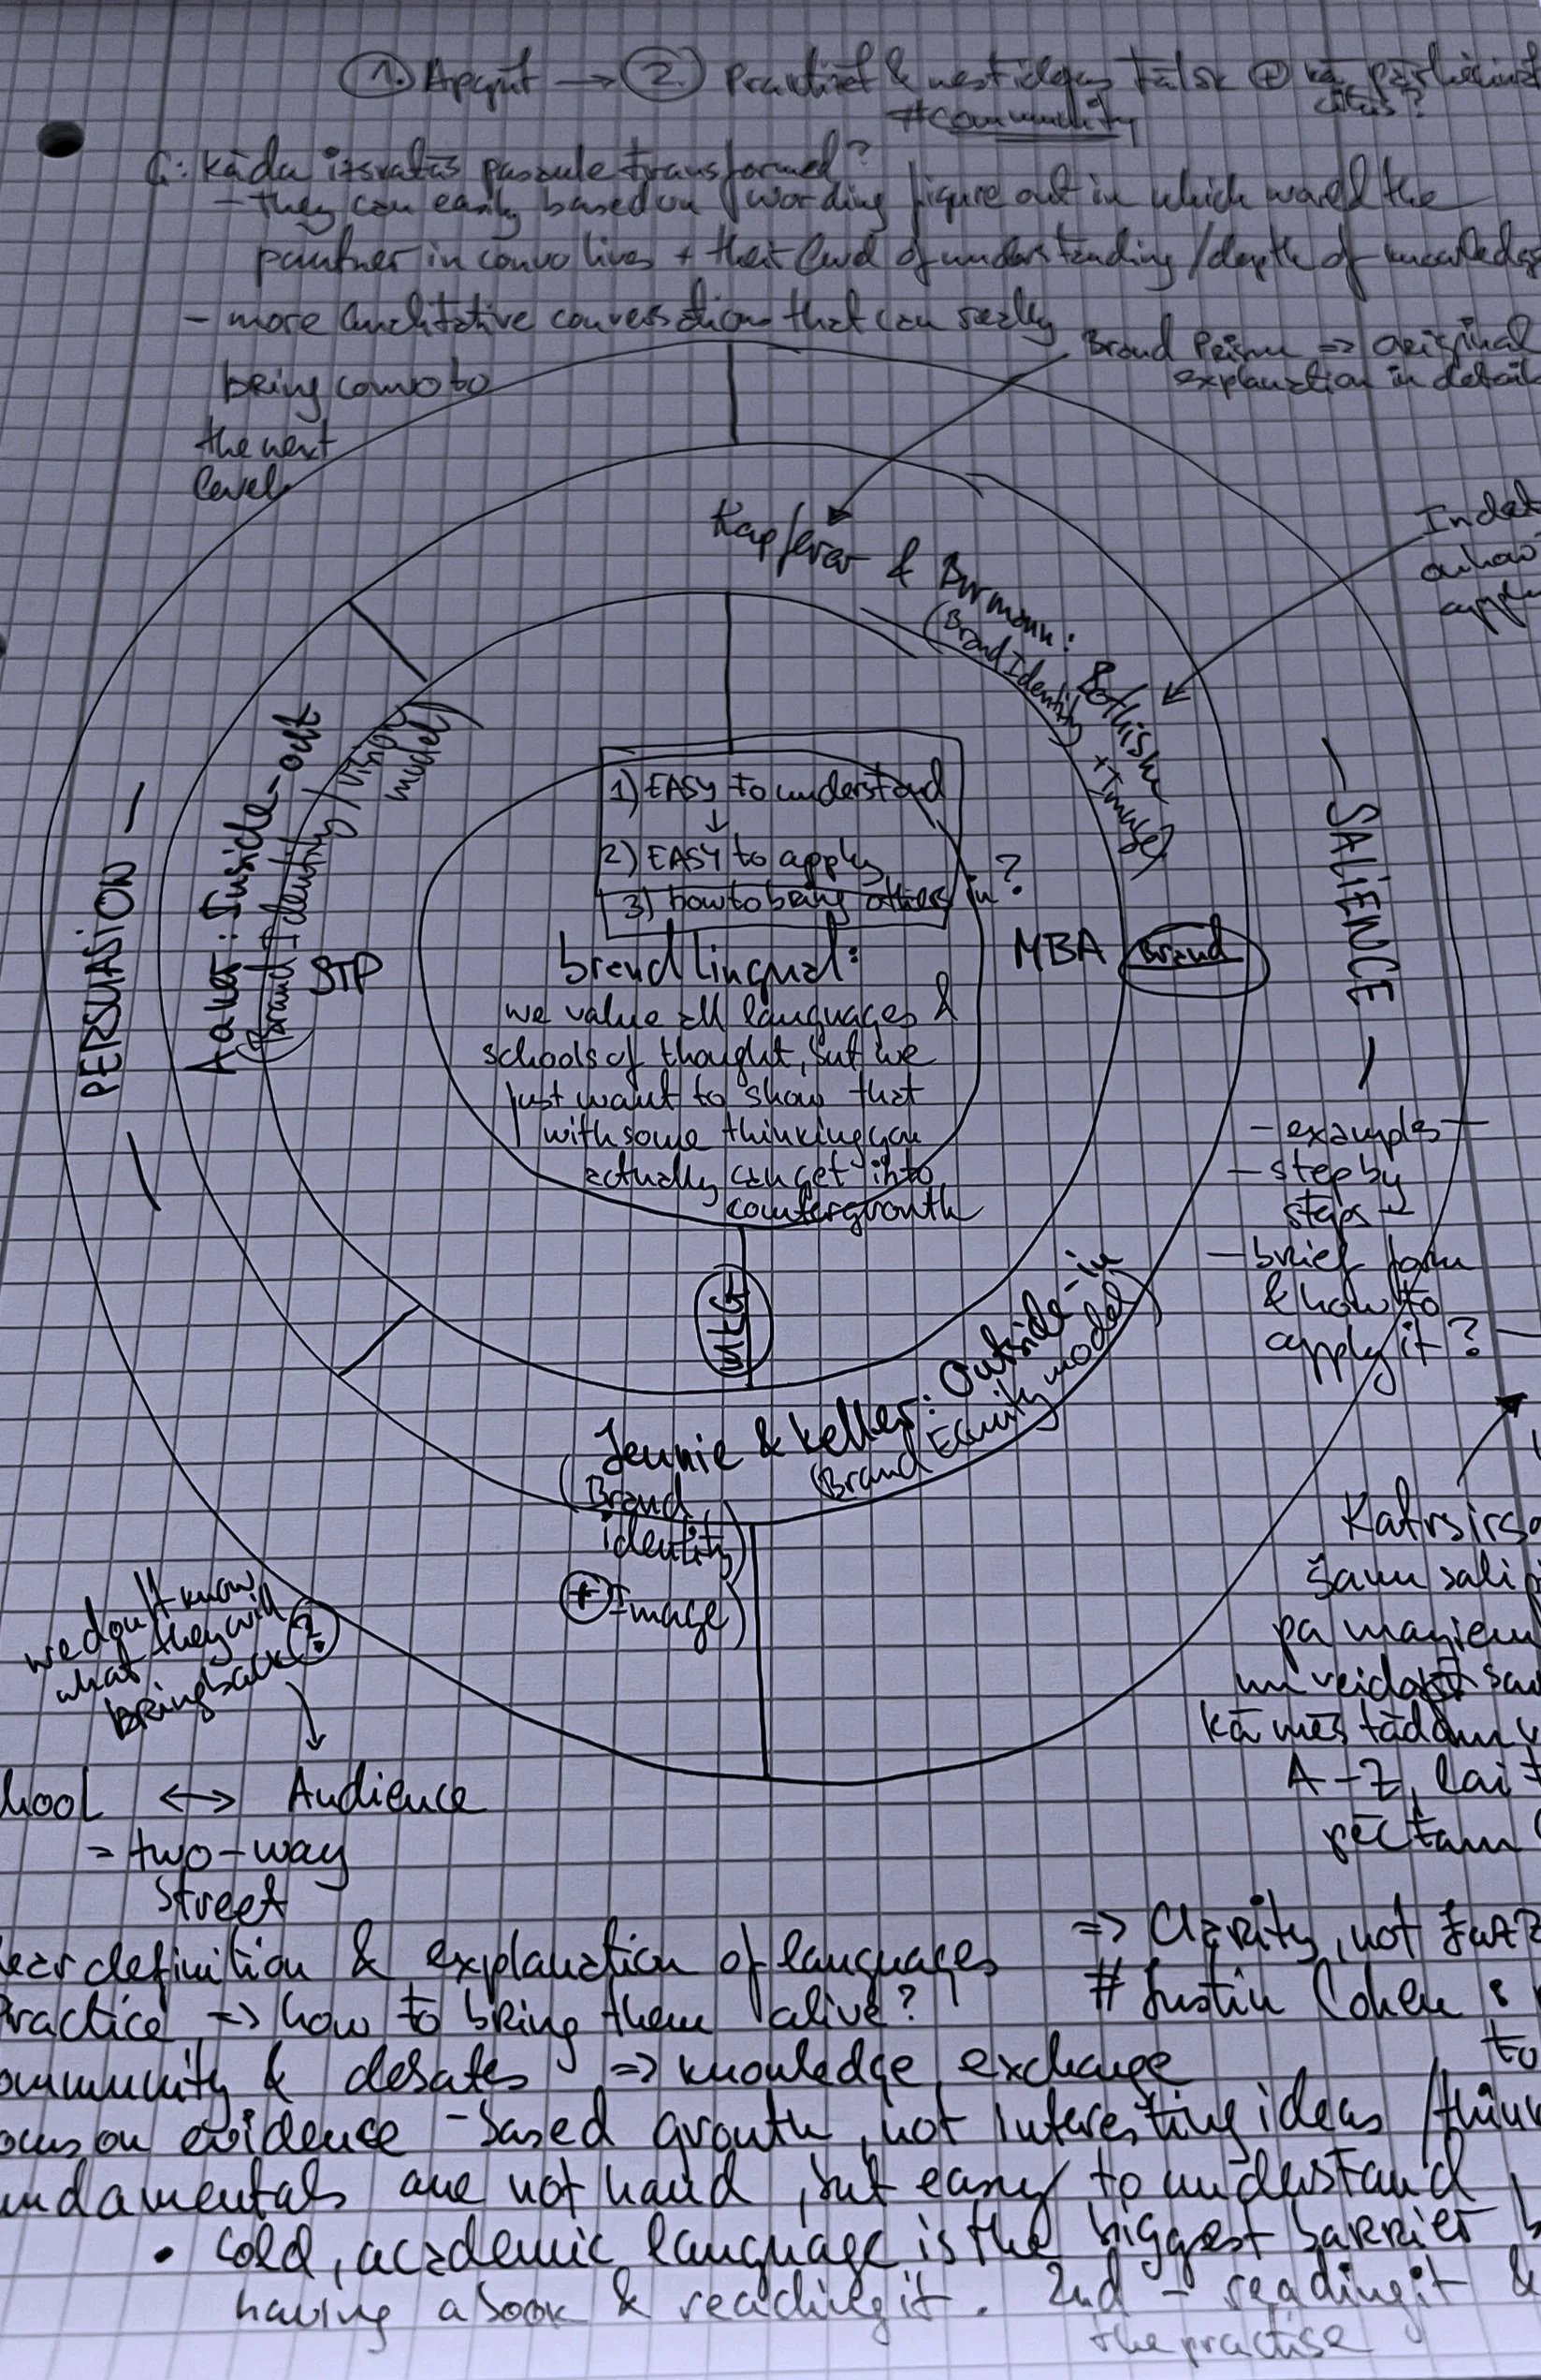 1. Apgūt → 2. Practizēt & nest idejas tālāk @ kā pārliecināt
#community citus?
G: kāda izskatās pasaule transformed?
- they can easily based on wording figure out in which world the
partner in convo lives + their level of understanding / depth of knowledge
- more qualitative conversations that can really
bring convo to
the next
level
Brand Prism => original
explanation in detail
Kapferer & Burmann: Bothish
(Brand Identity + Image)
on how
PERSUASION
Aaker: Inside-out
(Brand Identity / Vision
model)
STP
1) EASY to understand
↓
2) EASY to apply
3) how to bring others in?
brandlingual:
we value all languages &
schools of thought, but we
just want to show that
with some thinking you
actually can get into
MBA
Brand
- SALIENCE -
- examples -
- step by
steps
- brief form
& how to
apply it?
Mktg
Jennie & Keller: Outside-in
(Brand Equity model)
(Brand
identity)
+ Image)
we don't know
what they will
bring back?
hool ↔ Audience
= two-way
street
Katrs
savu
pa
un veido
kā mēs tādam
A-Z, lai
pēctam
definition & explanation of languages
ractice => how to bring them alive?
ommunity & debates => knowledge exchange
ocus on evidence-based growth, not interesting ideas /
undamentals are not hard, but easy to understand,
=> Clarity, not
# Justin Cohen :
to
• cold, academic language is the biggest barrier
having a book & reading it. 2nd - reading it &
the practise